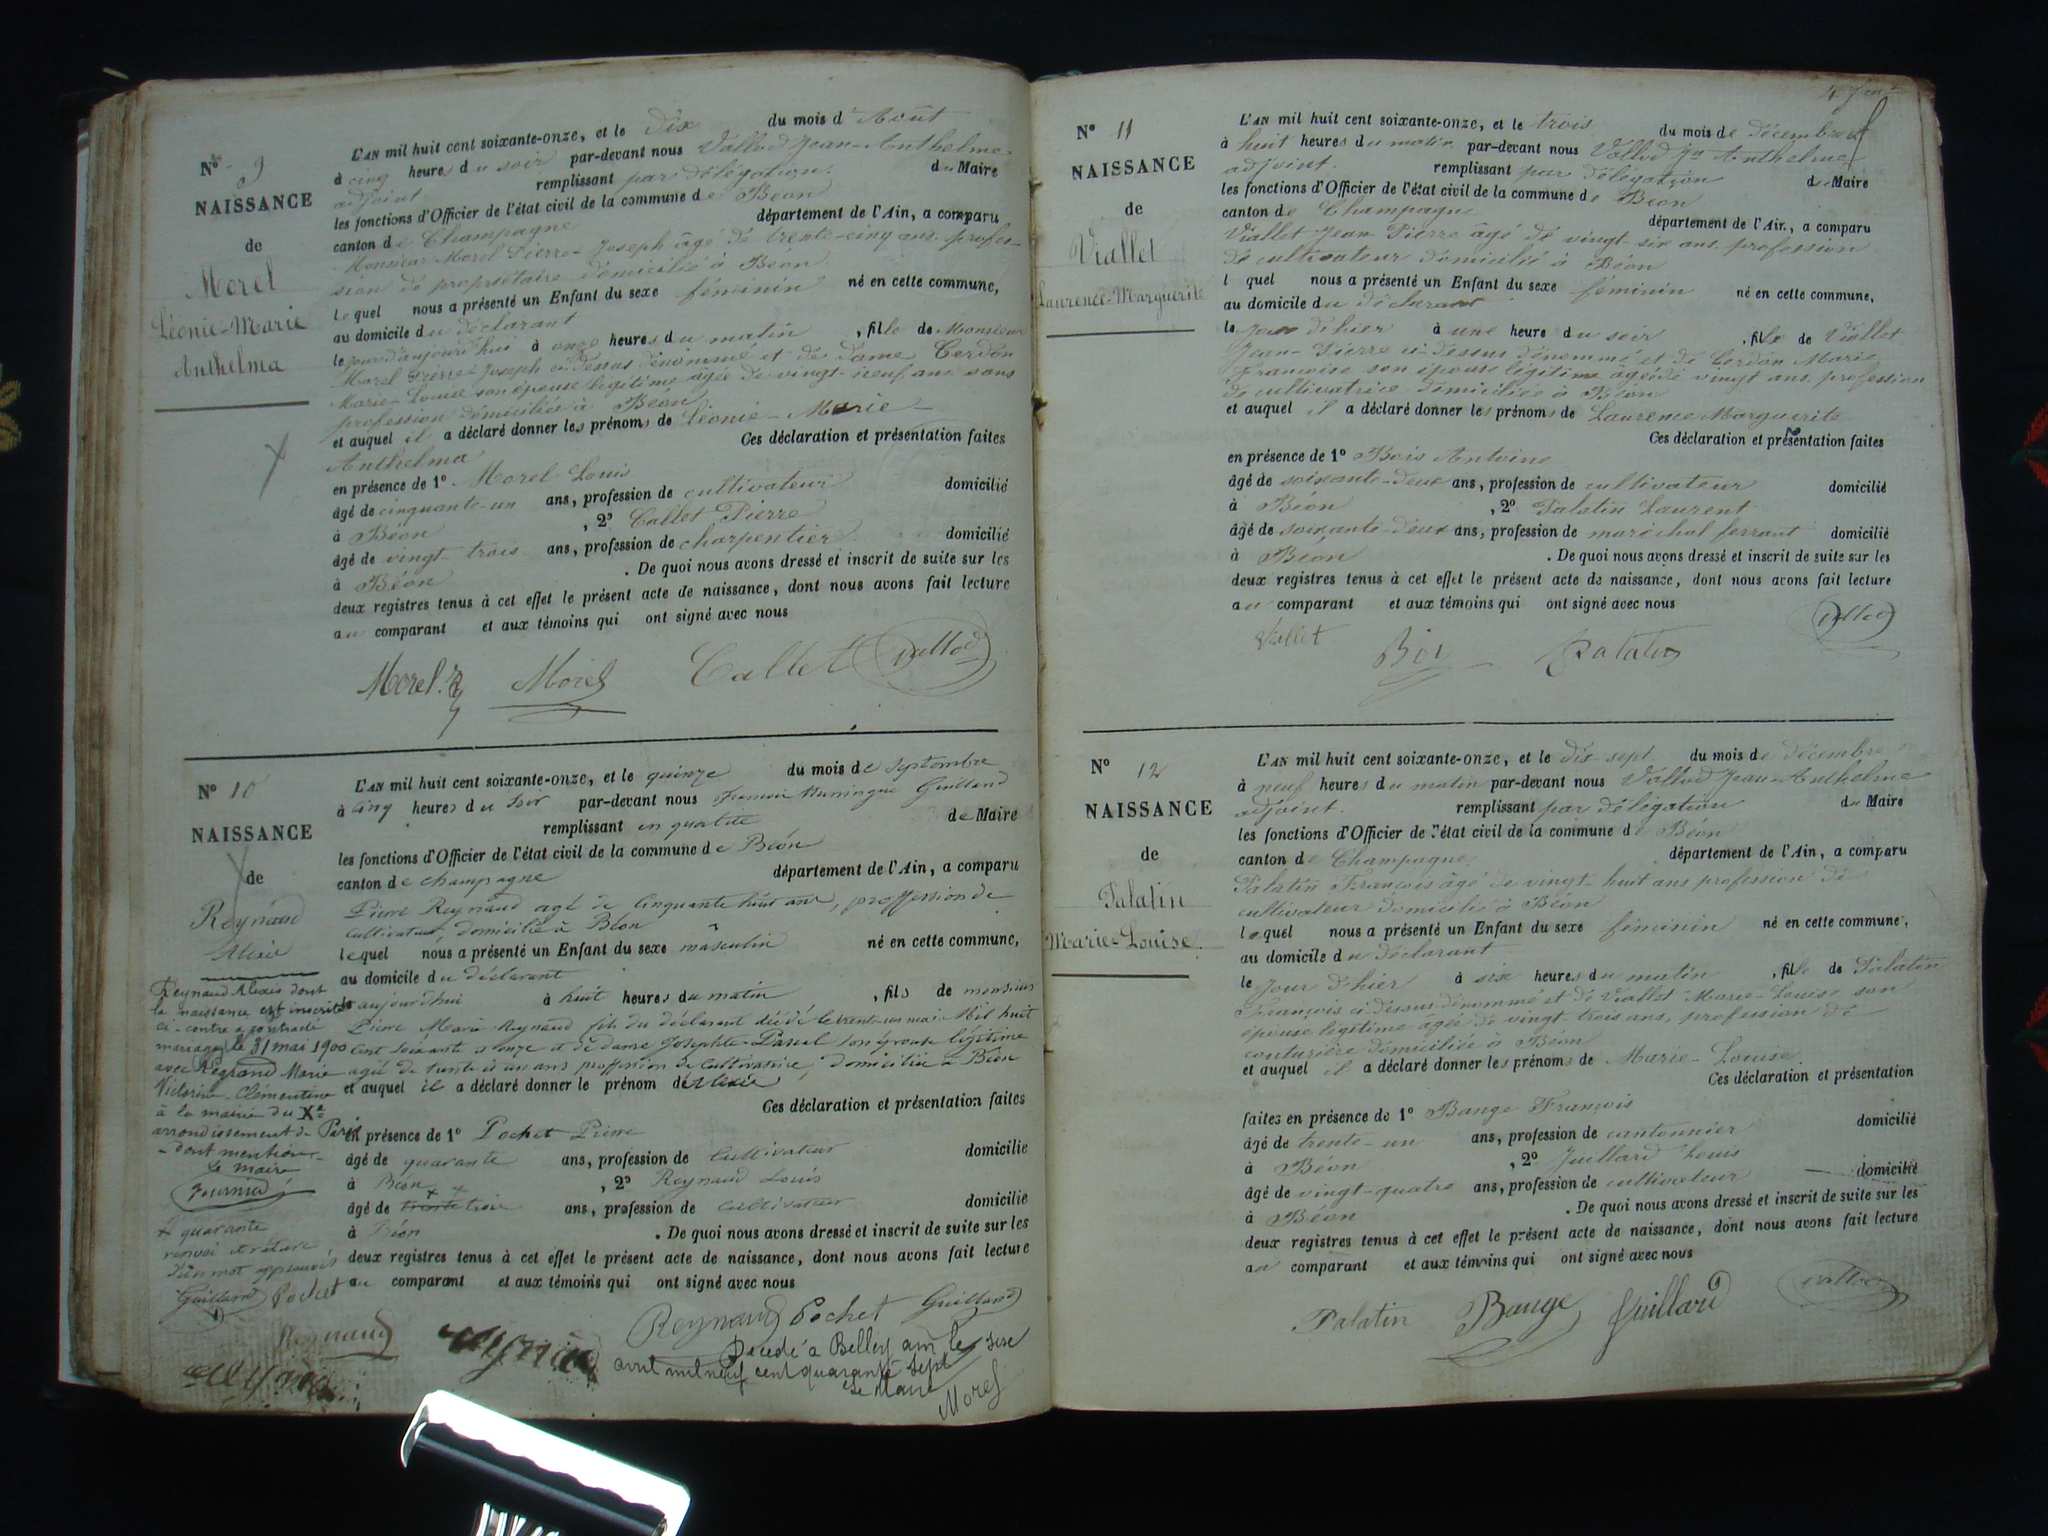 N° 9
NAISSANCE
de
Morel
Léonie-Marie
Anthelma
L'AN mil huit cent soixante-onze, et le dix du mois d'Août
à cinq heures du soir par-devant nous Vallod Jean-Anthelme
adjoint remplissant par délégation du Maire
les fonctions d'Officier de l'état civil de la commune de Béon
canton de Champagne département de l'Ain, a comparu
Monsieur Morel Pierre-Joseph âgé de trente-cinq ans profes-
sion de propriétaire domicilié à Béon
lequel nous a présenté un Enfant du sexe féminin né en cette commune,
au domicile du déclarant
le jour d'aujourd'hui à onze heures du matin, fille de Monsieur
Morel Pierre-Joseph ci-dessus dénommé et de dame Cerdon
Marie-Louise son épouse légitime âgée de vingt-neuf ans sans
profession domiciliés à Béon
et auquel il a déclaré donner les prénoms de Léonie-Marie-
Anthelma Ces déclaration et présentation faites
en présence de 1° Morel Louis
âgé de cinquante-un ans, profession de cultivateur domicilié
à Béon, 2° Callet Pierre
âgé de vingt trois ans, profession de charpentier domicilié
à Béon. De quoi nous avons dressé et inscrit de suite sur les
deux registres tenus à cet effet le présent acte de naissance, dont nous avons fait lecture
au comparant et aux témoins qui ont signé avec nous
Morel Morel Callet Vallod
N° 10
NAISSANCE
de
Reynaud
Alexis
Reynaud Alexis dont
la naissance est inscrite
ci-contre a contracté
mariage le 31 mai 1900
avec Legrand Marie
Victorine Clémentine
à la mairie du Xe
arrondissement de Paris
dont mention
Le maire
Fournier
+ quarante
renvoi et rature
d'un mot approuvés
Guilland Pochet
Reynaud
L'AN mil huit cent soixante-onze, et le quinze du mois de septembre
à cinq heures du soir par-devant nous François Guilland
remplissant en qualité de Maire
les fonctions d'Officier de l'état civil de la commune de Béon
canton de champagne département de l'Ain, a comparu
Pierre Reynaud agé de cinquante huit ans, proffession de
cultivateur, domicilié à Béon
lequel nous a présenté un Enfant du sexe masculin né en cette commune,
au domicile du déclarant
le aujourd'hui à huit heures du matin, fils de monsieur
Pierre Marie Reynaud fils du déclarant décédé le trente-un mai Mil huit
cent soixante et onze et de dame Josephte son épouse légitime
agée de trente et un ans proffession de cultivatrice, domiciliée à Béon
et auquel il a déclaré donner le prénom de Alexis
Ces déclaration et présentation faites
en présence de 1° Pochet Pierre
âgé de quarante ans, profession de cultivateur domicilié
à Béon, 2° Reynaud Louis
âgé de trente trois ans, profession de cultivateur domicilié
à Béon. De quoi nous avons dressé et inscrit de suite sur les
deux registres tenus à cet effet le présent acte de naissance, dont nous avons fait lecture
au comparant et aux témoins qui ont signé avec nous
Reynaud Pochet Guilland
Décédé à Belley Ain le seize
avril mil neuf cent quarante sept
Le Maire
Morel
N° 11
NAISSANCE
de
Viallet
Laurence-Marguerite
L'AN mil huit cent soixante-onze, et le trois du mois de décembre
à huit heures du matin par-devant nous Vallod Jn Anthelme
adjoint remplissant par délégation du Maire
les fonctions d'Officier de l'état civil de la commune de Béon
canton de Champagne département de l'Ain, a comparu
Viallet Jean Pierre âgé de vingt-six ans profession
de cultivateur domicilié à Béon
lequel nous a présenté un Enfant du sexe féminin né en cette commune,
au domicile du déclarant
le jour d'hier à une heure du soir, fille de Viallet
Jean-Pierre ci-dessus dénommé et de Cerdon Marie
Françoise son épouse légitime âgée de vingt ans profession
de cultivatrice domiciliée à Béon
et auquel il a déclaré donner les prénoms de Laurence Marguerite
Ces déclaration et présentation faites
en présence de 1° Bois Antoine
âgé de soixante-deux ans, profession de cultivateur domicilié
à Béon, 2° Palatin Laurent
âgé de soixante-deux ans, profession de maréchal ferrant domicilié
à Béon. De quoi nous avons dressé et inscrit de suite sur les
deux registres tenus à cet effet le présent acte de naissance, dont nous avons fait lecture
au comparant et aux témoins qui ont signé avec nous
Viallet Bois Palatin Vallod
N° 12
NAISSANCE
de
Palatin
Marie-Louise.
L'AN mil huit cent soixante-onze, et le dix sept du mois de décembre
à neuf heures du matin par-devant nous Vallod Jean-Anthelme
adjoint. remplissant par délégation du Maire
les fonctions d'Officier de l'état civil de la commune de Béon
canton de Champagne département de l'Ain, a comparu
Palatin François âgé de vingt-huit ans profession de
cultivateur domicilié à Béon
lequel nous a présenté un Enfant du sexe féminin né en cette commune,
au domicile du déclarant
le jour d'hier à six heures du matin, fille de Palatin
François ci-dessus dénommé et de Viallet Marie-Louise son
épouse légitime âgée de vingt trois ans, profession de
couturière domiciliée à Béon
et auquel il a déclaré donner les prénoms de Marie-Louise.
Ces déclaration et présentation
faites en présence de 1° Bange François
âgé de trente-un ans, profession de cantonnier domicilié
à Béon, 2° Juillard Louis
âgé de vingt-quatre ans, profession de cultivateur domicilié
à Béon. De quoi nous avons dressé et inscrit de suite sur les
deux registres tenus à cet effet le présent acte de naissance, dont nous avons fait lecture
au comparant et aux témoins qui ont signé avec nous
Palatin Bange Juillard Vallod